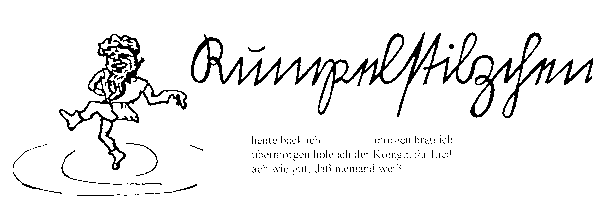 Rumpelstilzchen
heute back ich morgen brau ich
übermorgen hole ich der Königin ihr Kind
ach wie gut, daß niemand weiß